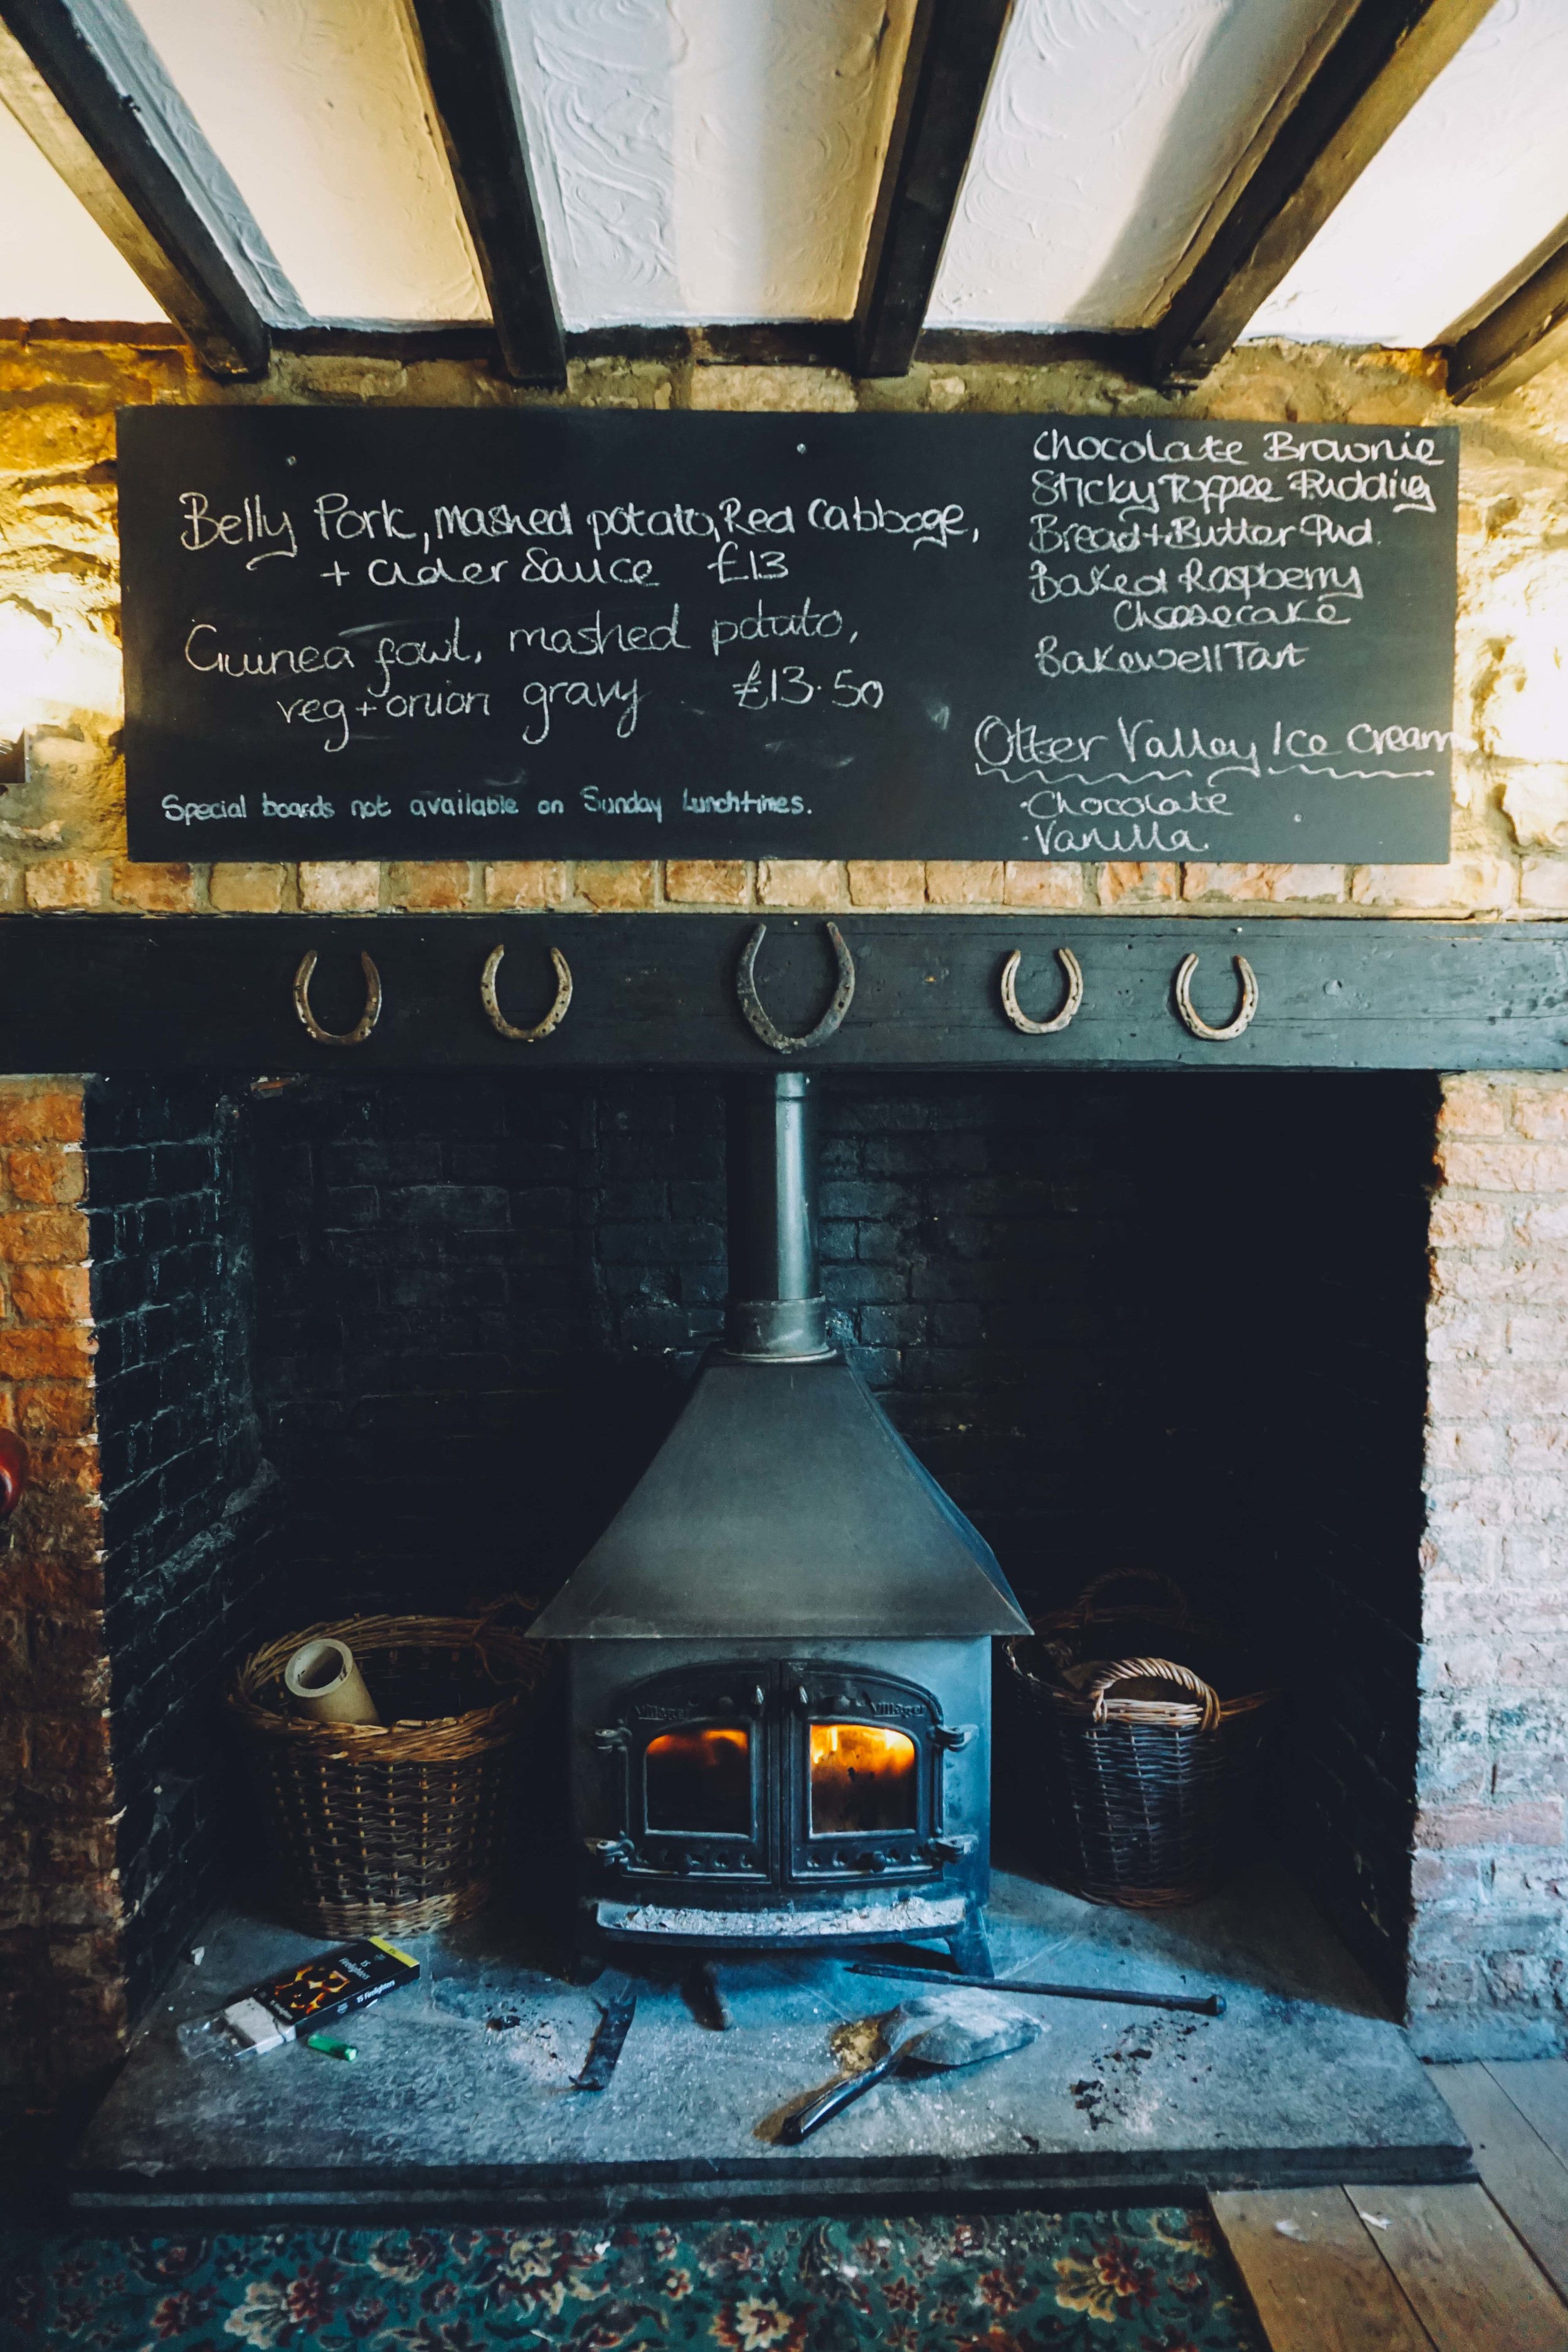 Belly Pork, mashed potato, Red Cabbage,
+ cider Sauce £13
Guinea fowl, mashed potato,
veg + onion gravy £13.50
Special boards not available on Sunday Lunchtimes.
Chocolate Brownie
Sticky Toffee Pudding
Bread + Butter Pud.
Baked Raspberry
Cheesecake
Bakewell Tart
Otter Valley Ice Cream
· Chocolate
· Vanilla.
Villager Villager
15
Firelighters
15 Firelighters